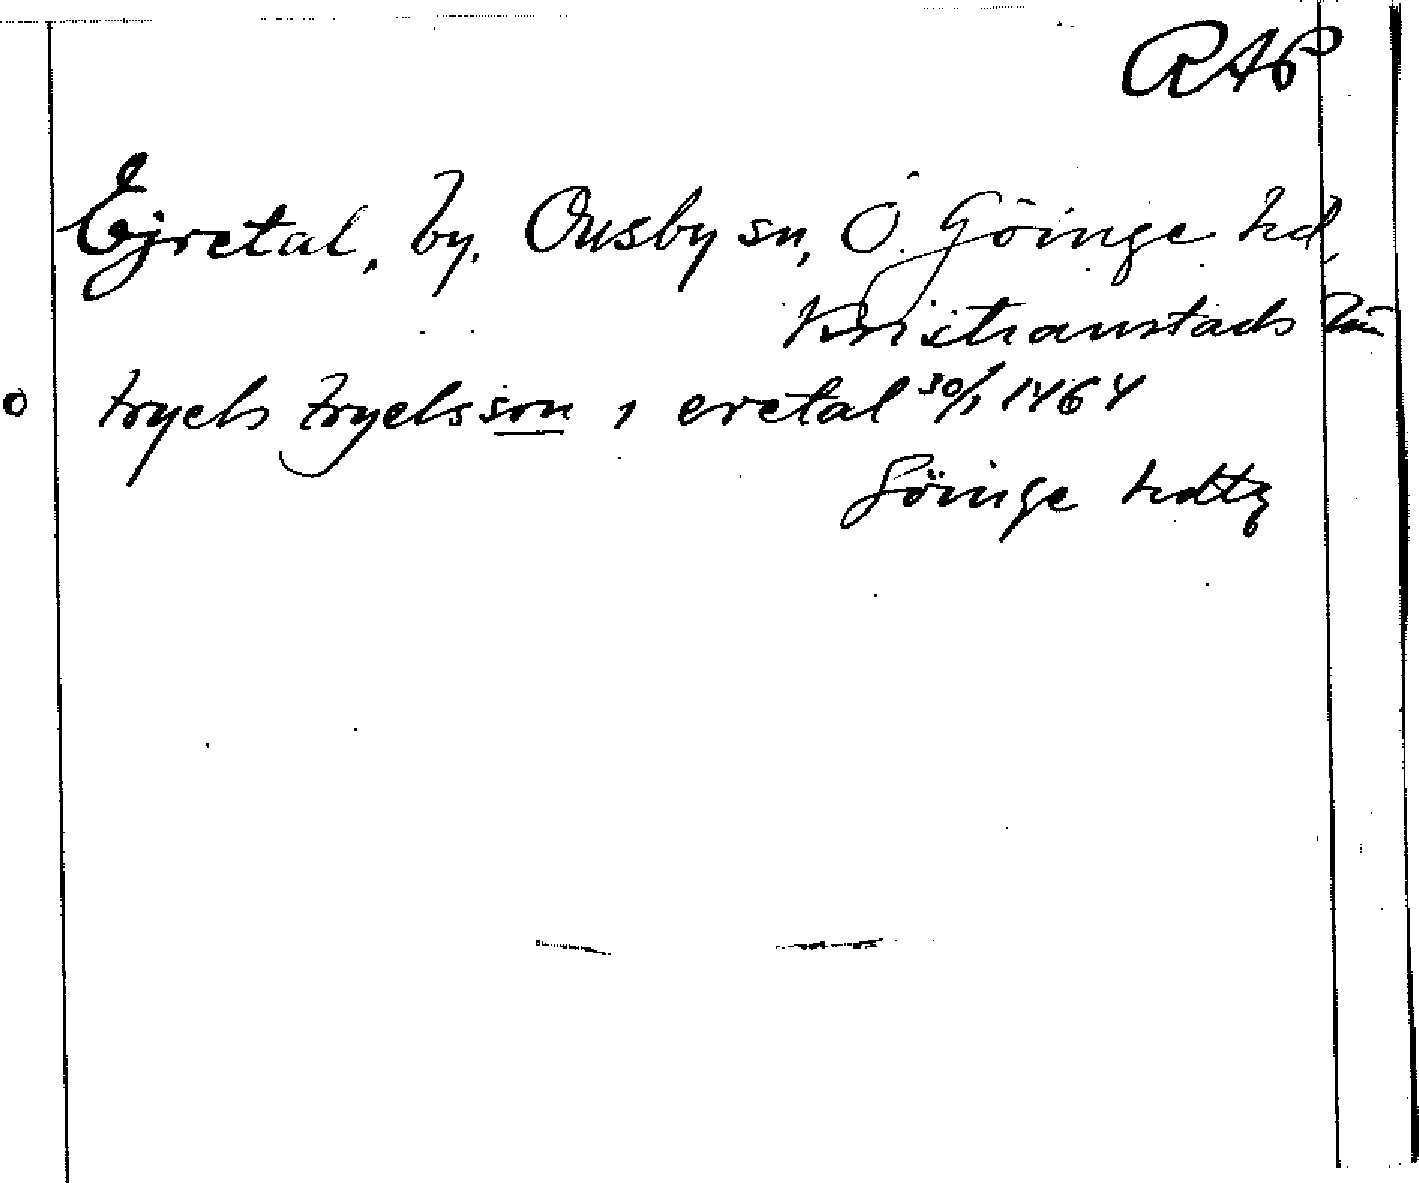 RAP
Ejretal, by, Ousby sn, Ö. Göinge hd,
Kristianstads län
o tryels tryelsson i eretal 30/1 1464
Göinge hdtg